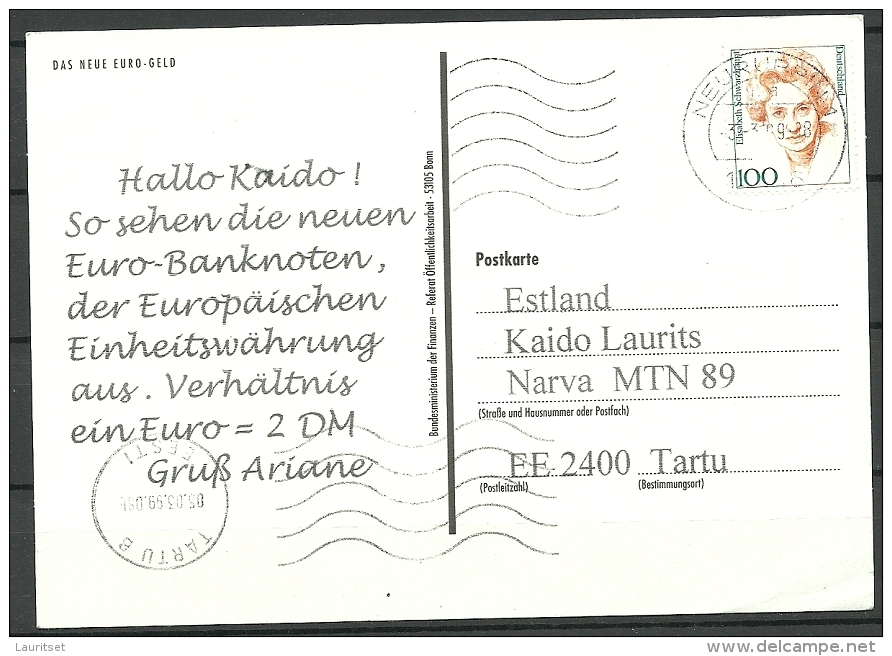 DAS NEUE EURO-GELD
Hallo Kaido !
So sehen die neuen
Euro-Banknoten ,
der Europäischen
Einheitswährung
aus . Verhältnis
ein Euro = 2 DM
Gruß Ariane
EESTI
05.03.99
TARTU
Bundesministerium der Finanzen – Referat Öffentlichkeitsarbeit · 53105 Bonn
Deutschland
Elisabeth Schwarzhaupt
100
NEURUPPIN
Postkarte
Estland
Kaido Laurits
Narva MTN 89
(Straße und Hausnummer oder Postfach)
EE 2400 Tartu
(Postleitzahl) (Bestimmungsort)
Lauritset
www.delcampe.net